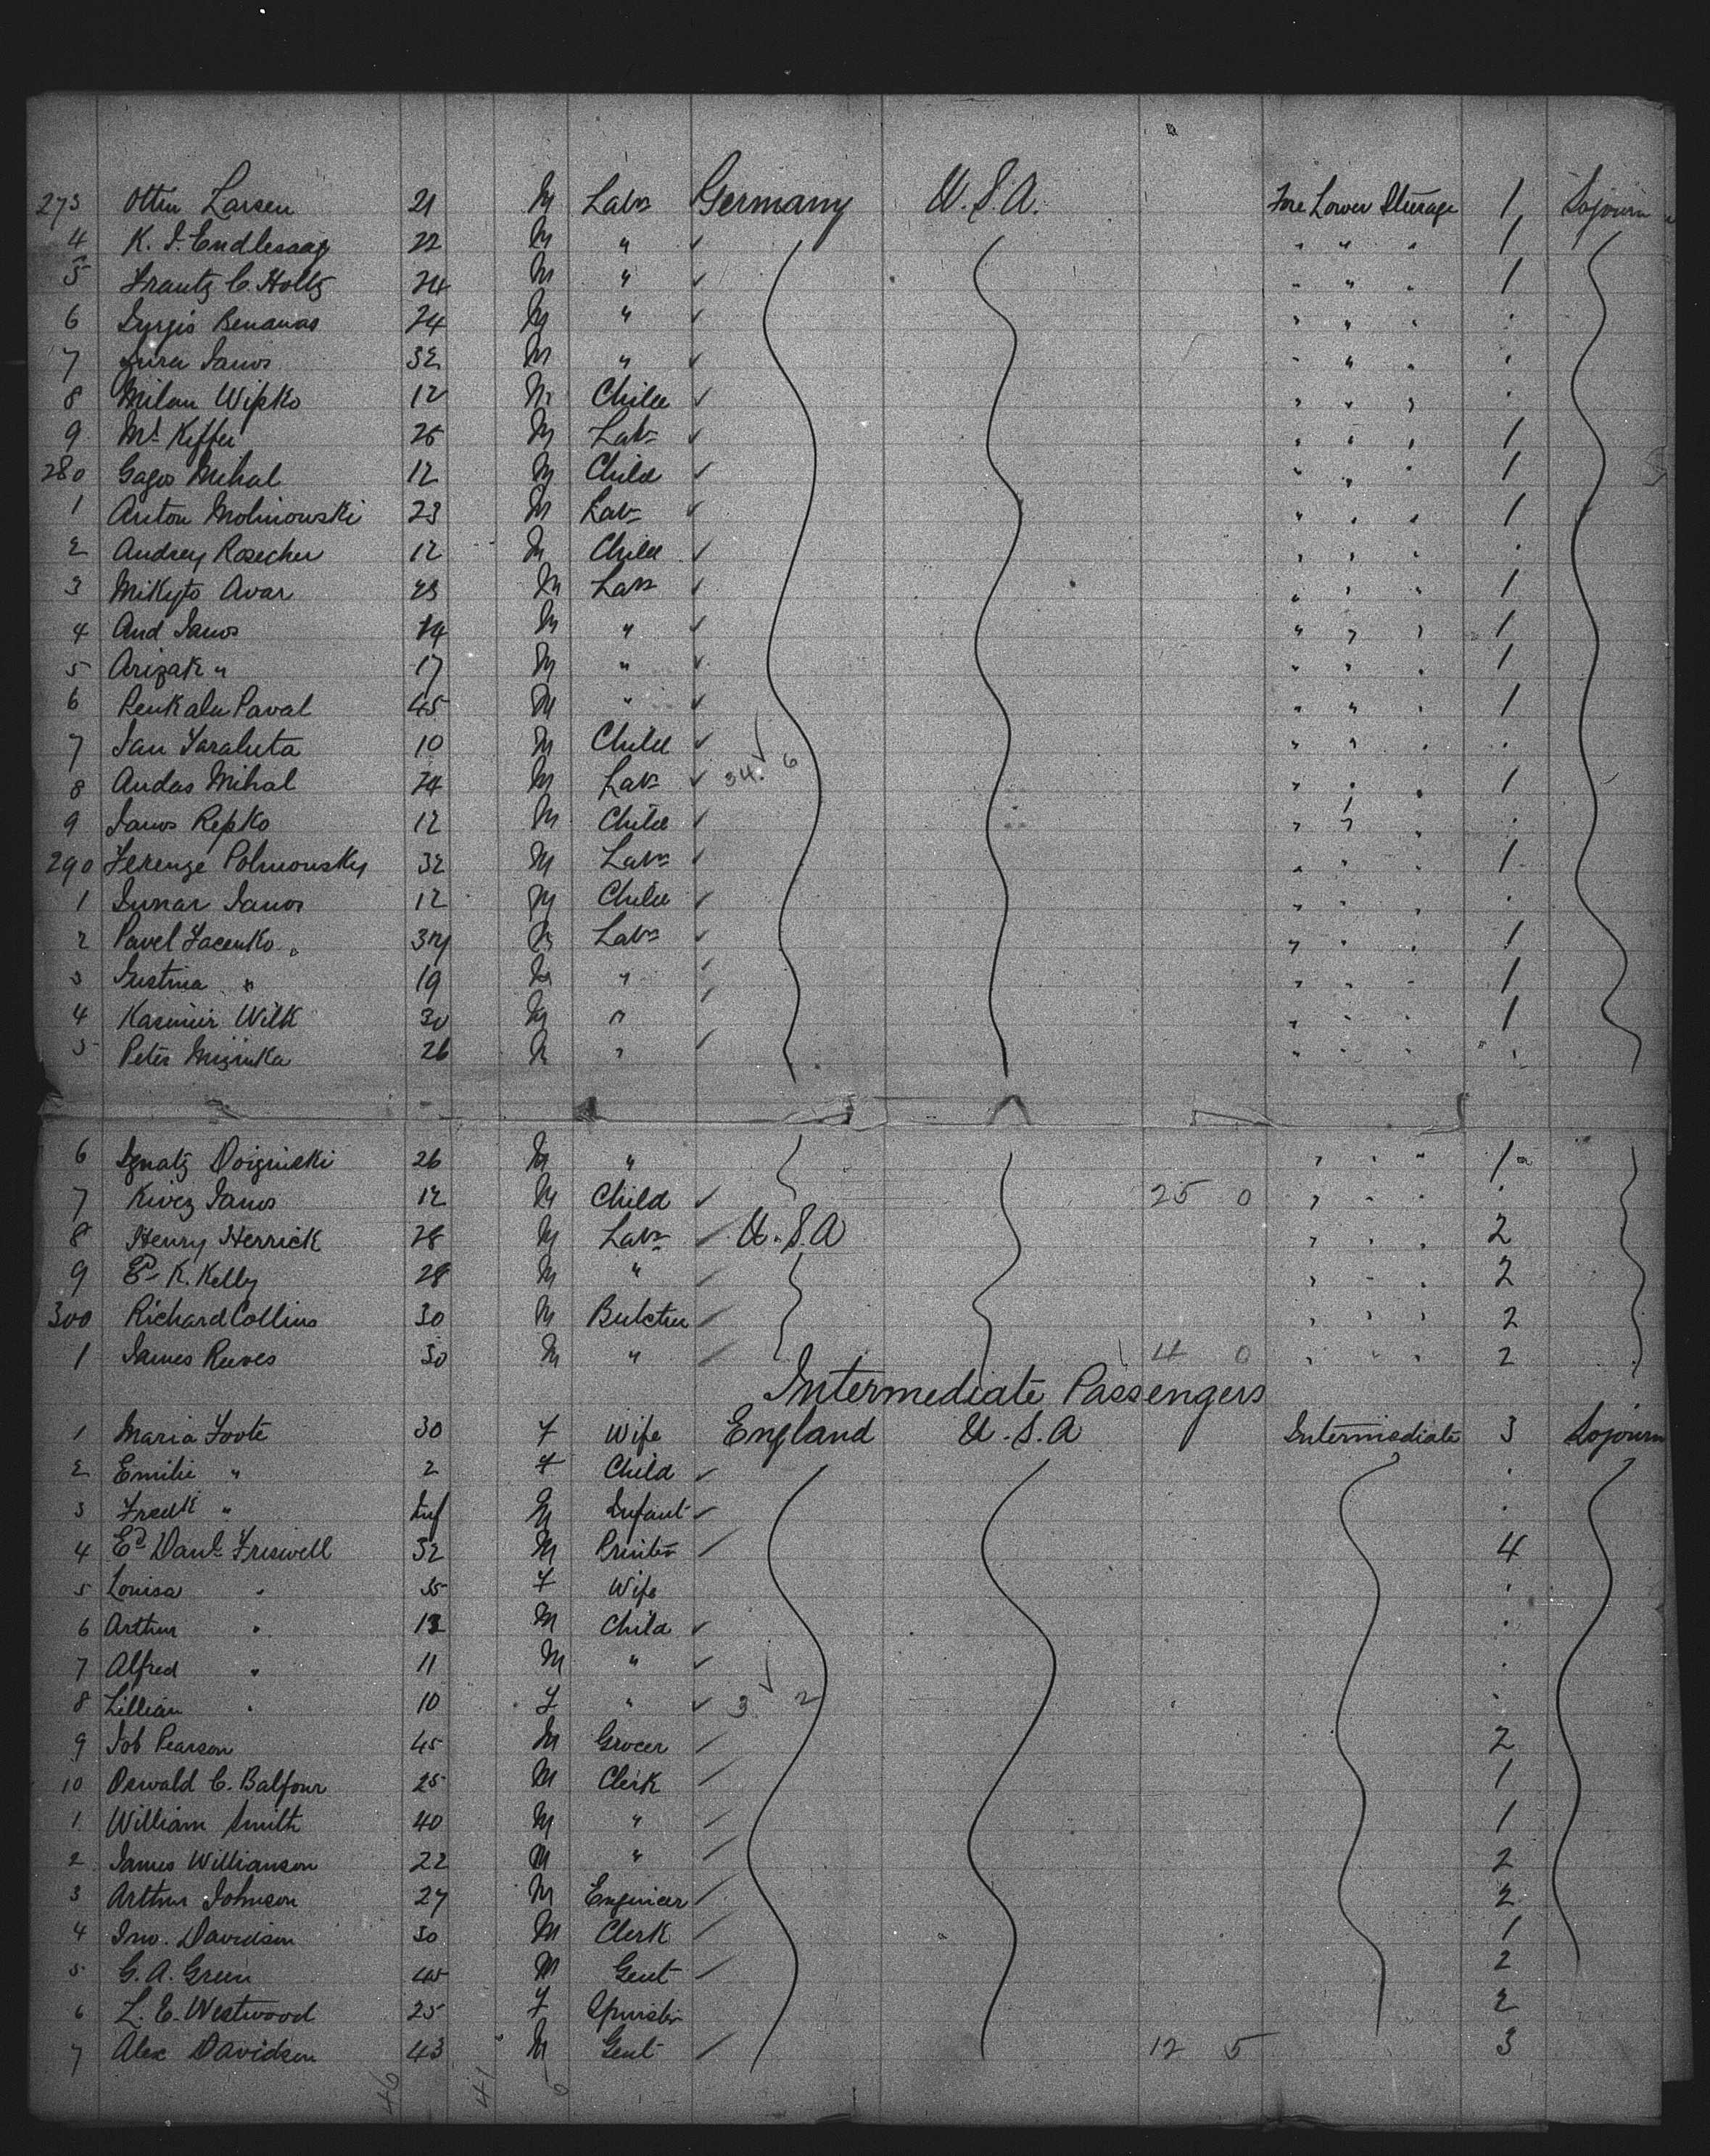 273 Otttin Larsen 21 M Labr Germany U.S.A. Fore Lower Sturage 1 Sojourn
4 K. J. Endlesaag 22 M " " " " 1
5 Frantz C. Holtz 24 M " " " " 1
6 Benanas 24 M " " " "
7 Janos 32 M " " " "
8 Milan Wipko 12 M Child " " "
9 Keffer 25 M Labr " " " 1
280 Gagos Mihal 12 M Child " " " 1
1 Anton Molinowski 23 M Labr " " " 1
2 Andrey Rosecher 12 M Child " " "
3 Mikyto Avar 23 M Labr " " " 1
4 And Janos M " " " " 1
5 Arizak " 17 M " " " " 1
6 Renkalu Paval 45 M " " " " 1
7 Jan Taraluta 10 M Child " " "
8 Andas Mihal 24 M Labr 34. 6 " " " 1
9 Janos Repko 12 M Child " " "
290 Ferenze Polmonsky 32 M Labr " " " 1
1 Janos 12 M Child " " "
2 Pavel Facenko M Labr " " " 1
3 Justina " 19 M " " " " 1
4 Kasimir Wilk 30 M " " " " 1
5 Peter Mizinka 26 M " " " "
6 Ignatz Doizinski 26 M " " " " 1
7 Kivez Janos 12 M Child 25 0 " " "
8 Henry Herrick 28 M Labr U.S.A " " " 2
9 Ed K. Kelly 28 M " " " " 2
300 Richard Collins 30 M Butcher " " " 2
1 James Reeves 30 M " 4 0 " " " 2
Intermediate Passengers
1 Maria Foote 30 F Wife England U.S.A Intermediate 3 Sojourn
2 Emilie " 2 F Child
3 Fredk " Inf M Infant
4 Ed Danl Friswell 32 M Printer 4
5 Louisa " 35 F Wife
6 Arthur " 13 M Child
7 Alfred " 11 M "
8 Lillian " 10 F " 3 2
9 Job Pearson 45 M Grocer 2
10 Oswald C. Balfour 25 M Clerk 1
1 William Smith 40 M " 1
2 James Williamson 22 M " 2
3 Arthur Johnson 27 M Engineer 2
4 Jno. Davidson 30 M Clerk 1
5 G. A. Green 45 M Gent 2
6 L. E. Westwood 25 F Spinster 2
7 Alex Davidson 43 M Gent 12 5 3
46 41 6